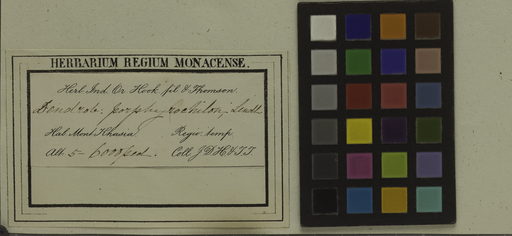 HERBARIUM REGIUM MONACENSE.
Herb. Ind. Or. Hook. fil. & Thomson.
Dendrob. porphyrochilon, Lindl.
Hab. Mont. Khasia Regio temp.
Alt. 5-6000 ped. Coll. J.D.H. & T.T.